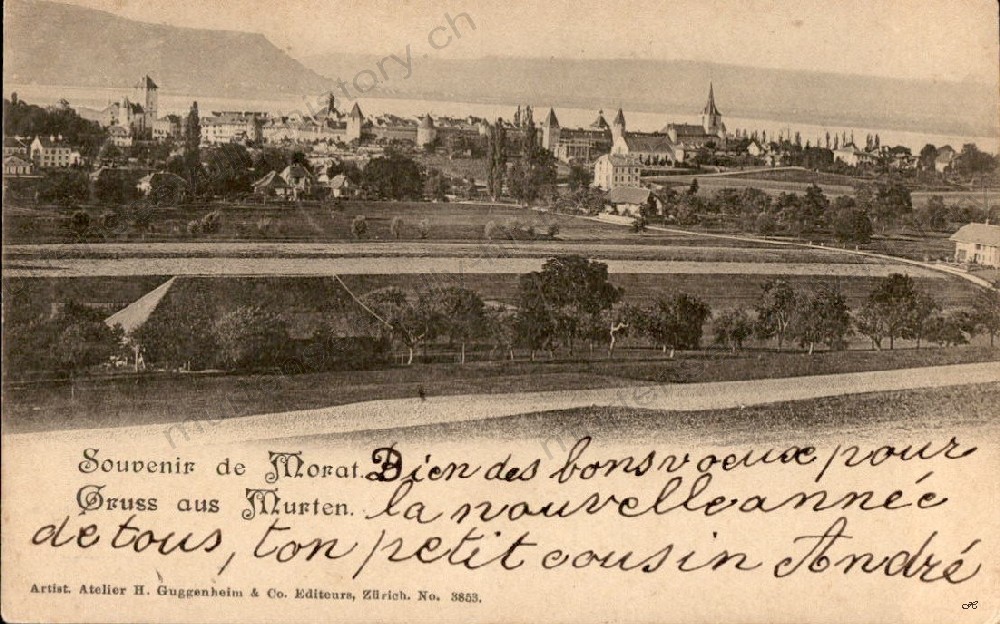 Souvenir de Morat. Bien des bons voeux pour
Gruss aus Murten. la nouvelle année
de tous, ton petit cousin André
Artist. Atelier H. Guggenheim & Co. Editeurs, Zürich. No. 3853.